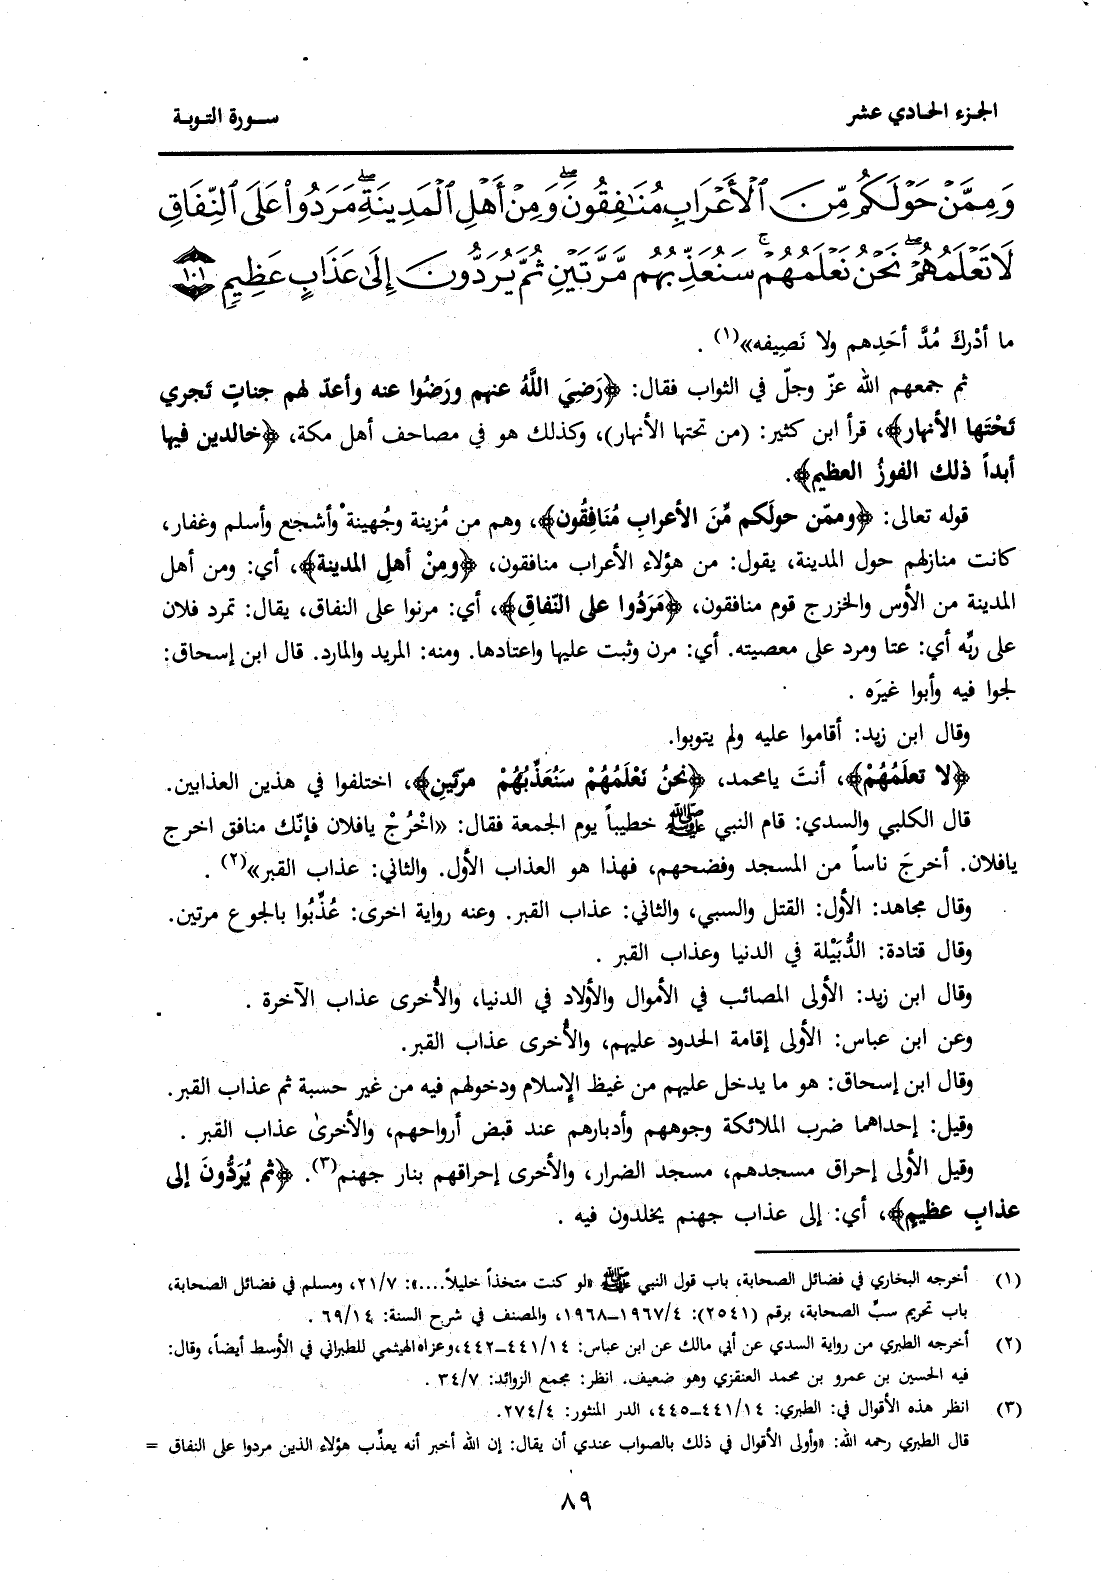 الجزء الحادي عشر
سورة التوبة
وَمِمَّنْ حَوْلَكُم مِّنَ ٱلْأَعْرَابِ مُنَٰفِقُونَ ۖ وَمِنْ أَهْلِ ٱلْمَدِينَةِ ۖ مَرَدُوا۟ عَلَى ٱلنِّفَاقِ
لَا تَعْلَمُهُمْ ۖ نَحْنُ نَعْلَمُهُمْ ۚ سَنُعَذِّبُهُم مَّرَّتَيْنِ ثُمَّ يُرَدُّونَ إِلَىٰ عَذَابٍ عَظِيمٍ ١٠١
ما أدْركَ مُدَّ أحَدِهم ولا نَصِيفه»(١) .
ثم جمعهم الله عزّ وجلّ في الثواب فقال: ﴿رَضيَ اللَّهُ عنهم ورَضُوا عنه وأعدّ لهم جناتٍ تَجري
تَحْتَها الأنهار﴾، قرأ ابن كثير: (من تحتها الأنهار)، وكذلك هو في مصاحف أهل مكة، ﴿خالدين فيها
أبداً ذلك الفوزُ العظيم﴾.
قوله تعالى: ﴿وممّن حولَكم مِّنَ الأعرابِ مُنَافِقُون﴾، وهم من مُزينة وجُهينة وأشجع وأسلم وغفار،
كانت منازلهم حول المدينة، يقول: من هؤلاء الأعراب منافقون، ﴿ومِنْ أهلِ المدينة﴾، أي: ومن أهل
المدينة من الأوس والخزرج قوم منافقون، ﴿مَرَدُوا على النّفاقِ﴾، أي: مرنوا على النفاق، يقال: تمرد فلان
على ربِّه أي: عتا ومرد على معصيته. أي: مرن وثبت عليها واعتادها. ومنه: المريد والمارد. قال ابن إسحاق:
لجوا فيه وأبوا غيرَه .
وقال ابن زيد: أقاموا عليه ولم يتوبوا.
﴿لا تعلَمُهُمْ﴾، أنتَ يامحمد، ﴿نحنُ نَعْلَمُهُمْ سَنُعَذِّبُهُمْ مرّتينِ﴾، اختلفوا في هذين العذابين.
قال الكلبي والسدي: قام النبي ﷺ خطيباً يوم الجمعة فقال: «اخْرُجْ يافلان فإنّك منافق اخرج
يافلان. أخرجَ ناساً من المسجد وفضحهم، فهذا هو العذاب الأول. والثاني: عذاب القبر»(٢) .
وقال مجاهد: الأول: القتل والسبي، والثاني: عذاب القبر. وعنه رواية اخرى: عُذِّبُوا بالجوع مرتين.
وقال قتادة: الدُّبَيْلة في الدنيا وعذاب القبر .
وقال ابن زيد: الأولى المصائب في الأموال والأولاد في الدنيا، والأُخرى عذاب الآخرة .
وعن ابن عباس: الأولى إقامة الحدود عليهم، والأُخرى عذاب القبر.
وقال ابن إسحاق: هو ما يدخل عليهم من غيظ الإسلام ودخولهم فيه من غير حسبة ثم عذاب القبر.
وقيل: إحداهما ضرب الملائكة وجوههم وأدبارهم عند قبض أرواحهم، والأخرىٰ عذاب القبر .
وقيل الأولى إحراق مسجدهم، مسجد الضرار، والأخرى إحراقهم بنار جهنم(٣). ﴿ثم يُرَدُّونَ إلى
عذابٍ عظيمٍ﴾، أي: إلى عذاب جهنم يخلدون فيه .
(١) أخرجه البخاري في فضائل الصحابة، باب قول النبي ﷺ «لو كنت متخذاً خليلاً....»: ٢١/٧، ومسلم في فضائل الصحابة،
باب تحريم سبِّ الصحابة، برقم (٢٥٤١): ١٩٦٧/٤–١٩٦٨، والمصنف في شرح السنة: ٦٩/١٤ .
(٢) أخرجه الطبري من رواية السدي عن أبي مالك عن ابن عباس: ٤٤١/١٤–٤٤٢،وعزاه الهيثمي للطبراني في الأوسط أيضاً، وقال:
فيه الحسين بن عمرو بن محمد العنقزي وهو ضعيف. انظر: مجمع الزوائد: ٣٤/٧ .
(٣) انظر هذه الأقوال في: الطبري: ٤٤١/١٤–٤٤٥، الدر المنثور: ٢٧٤/٤.
قال الطبري رحمه الله: «وأولى الأقوال في ذلك بالصواب عندي أن يقال: إن الله أخبر أنه يعذّب هؤلاء الذين مردوا على النفاق =
٨٩